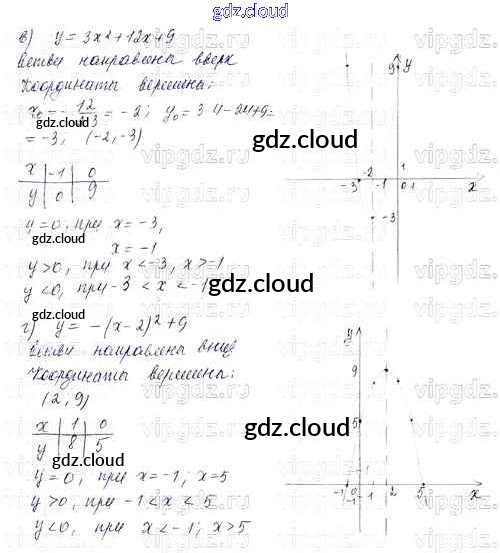 gdz.cloud
в) y = 3x² + 12x + 9
Ветви направлены вверх
Координаты вершины:
x₀ = - 12 / 2·3 = -2; y₀ = 3·4 - 24 + 9 =
= -3, (-2, -3)
x | -1 | 0
y | 0 | 9
y = 0, при x = -3,
x = -1
y > 0, при x < -3, x > -1
y < 0, при -3 < x < -1
г) y = -(x - 2)² + 9
Ветви направлены вниз
Координаты вершины:
(2, 9)
x | 1 | 0
y | 8 | 5
y = 0, при x = -1; x = 5
y > 0, при -1 < x < 5
y < 0, при x < -1; x > 5
9 y
-3 -2 -1 0 1 x
1
-3
y
9
5
-1 0 1 2 5 x
-1
gdz.cloud
gdz.cloud
gdz.cloud
gdz.cloud
gdz.cloud
gdz.cloud
gdz.cloud
vipgdz.ru